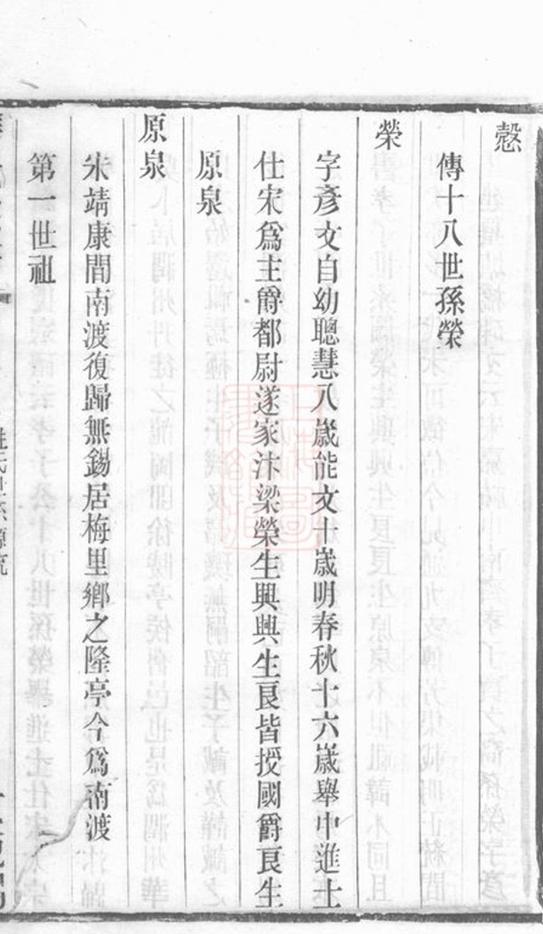 慤
傳十八世孫榮
榮
字彥文自幼聰慧八歲能文十歲明春秋十六歲舉中進士
仕宋爲主爵都尉遂家汴梁榮生興興生良皆授國爵良生
原泉
原泉
宋靖康間南渡復歸無錫居梅里鄉之隆亭今爲南渡
第一世祖